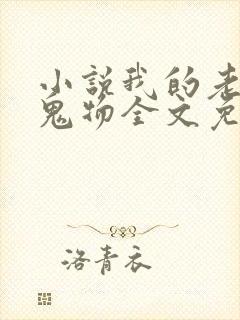 小说我的老
鬼物全文免
洛青衣